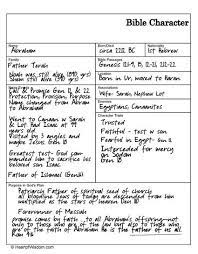 Bible Character
Name
Abraham
Born/Died
circa 2211 BC
Nationality
1st Hebrew
Family
Father Terah
Noah was still alive (890 yrs)
Shem was still alive (390 yrs)
Bible Passages
Genesis 11-9, 15, 21, 22-25
Location
Born in Ur, moved to Haran
Call of Promise Gen 12 & 22
Protection, Provision, Purpose
Name changed from Abram
to Abraham
Went to Canaan w Sarah
& Lot Had Isaac at 99
years old
Visited by 3 angels and
maybe Jesus Gen 18:1
Greatest test- God com-
manded him to sacrifice his
beloved son Isaac
Father of Ishmael (Gen16)
Associations
Wife: Sarah, Nephew Lot
Enemies
Egyptians, Canaanites
Character Traits
Trusted
Faithful - test w son
Faithful to Egypt Gen 12:
Interceded for mercy
on Sodom
Gen 18
Purpose in God's Plan
Patriarch Father of spiritual seed of church
all blessings and promises of God's people
come from Gods covenant w Abraham
Forerunner of Messiah
promise comes by faith to all Abraham's offspring-not
only to those who are of the law but also to those
who have the faith of Abraham He is the father of us all
Rom 4:16
© HeartofWisdom.com